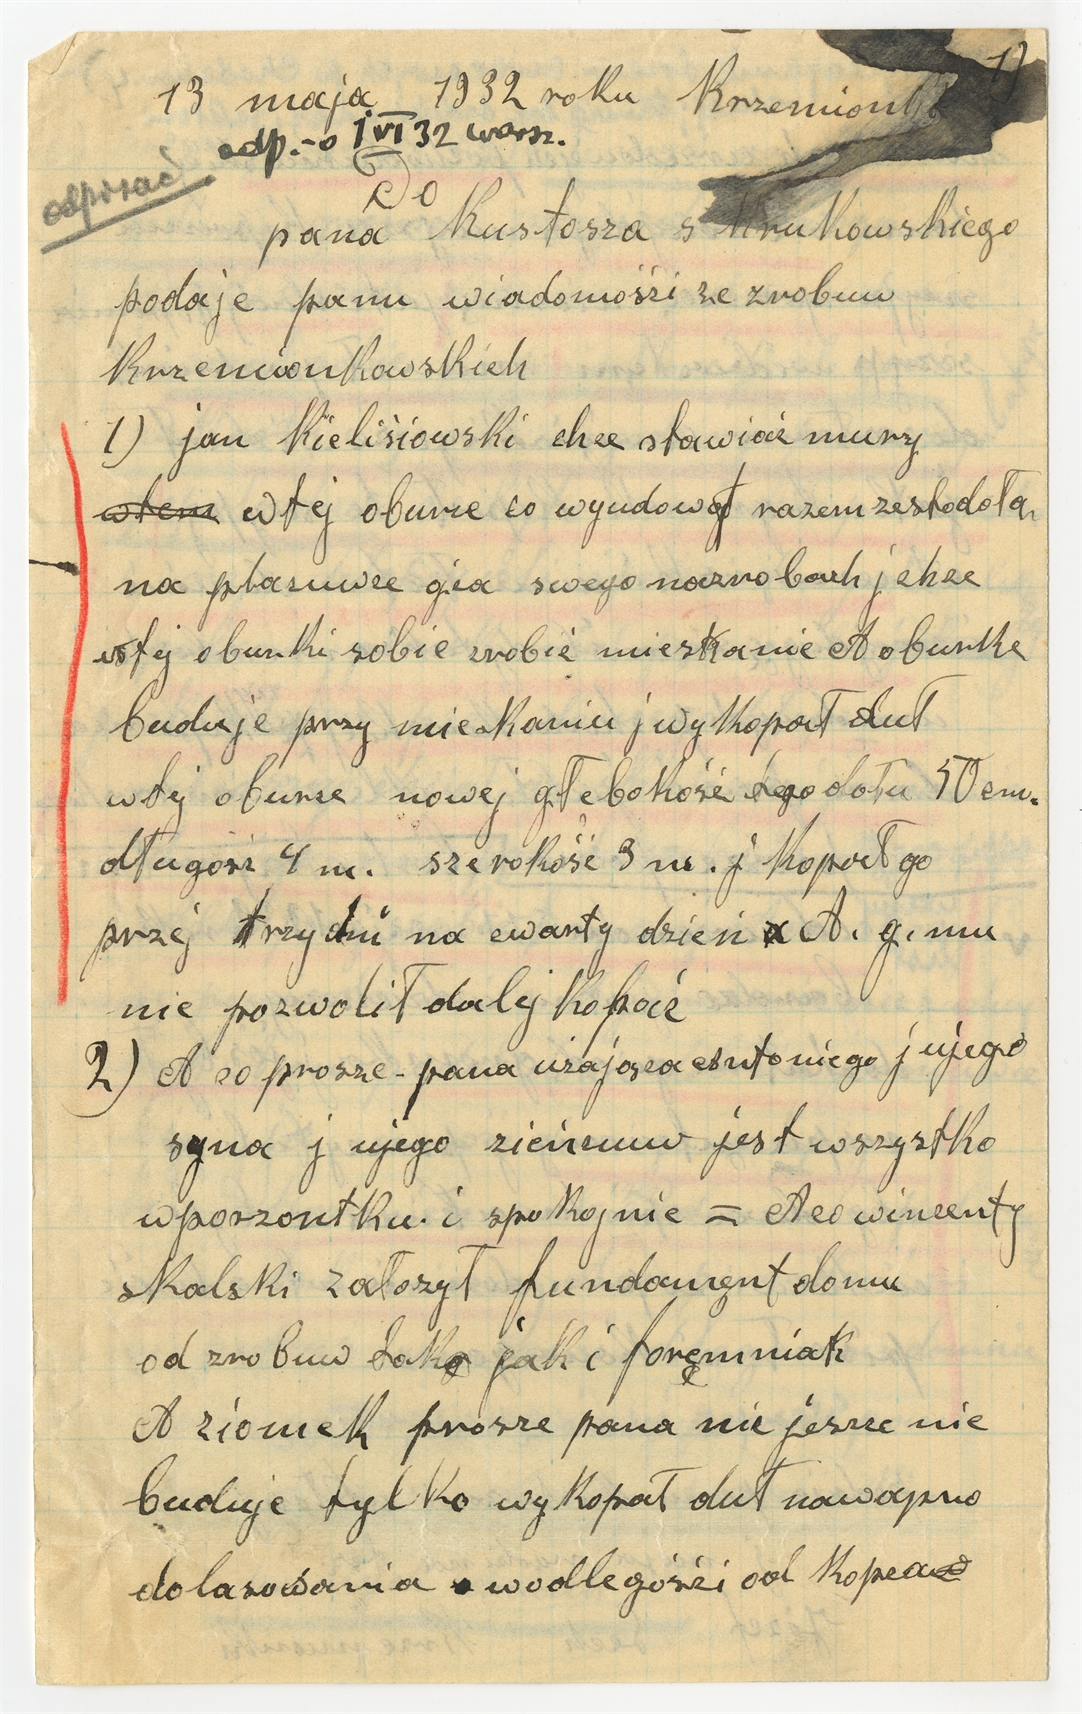 1)
13 maja 1932 roku Krzemionki
odp.-o 1 VI 32 warsz.
odpisać
Do
pana Kustosza s Krukowskiego
podaje panu wiadomośśi ze zrobuw
Krzemionkowskich
1) jan Kielisiowski chce stawiać mury
wtem wtej oburze co wyudował razem zestodoła
na płazuwze gea swego nazrobach j chce
wtej oburki sobie zrobić mieszkanie A oburke
buduje przy mieskaniu j wykopał duł
wtej oburze nowej głebokość tego dołu 50 cm.
długość 4 m. szerokość 3 m. j kopał go
przej trzy dni na cwarty dzień A. g. mu
nie pozwolił dalej kopać
2) A co prosze pana uzająca Antoniego j ujego
syna j ujego zieńcuw jest wszystko
wporzontku. i spokojnie = A co wincenty
skalski załozył fundament domu
od zrobuw tak jak i foremniak
A ziomek prosze pana nie jesze nie
buduje tylko wykopał duł nawapno
dolasowania wodlegośśi od kopca